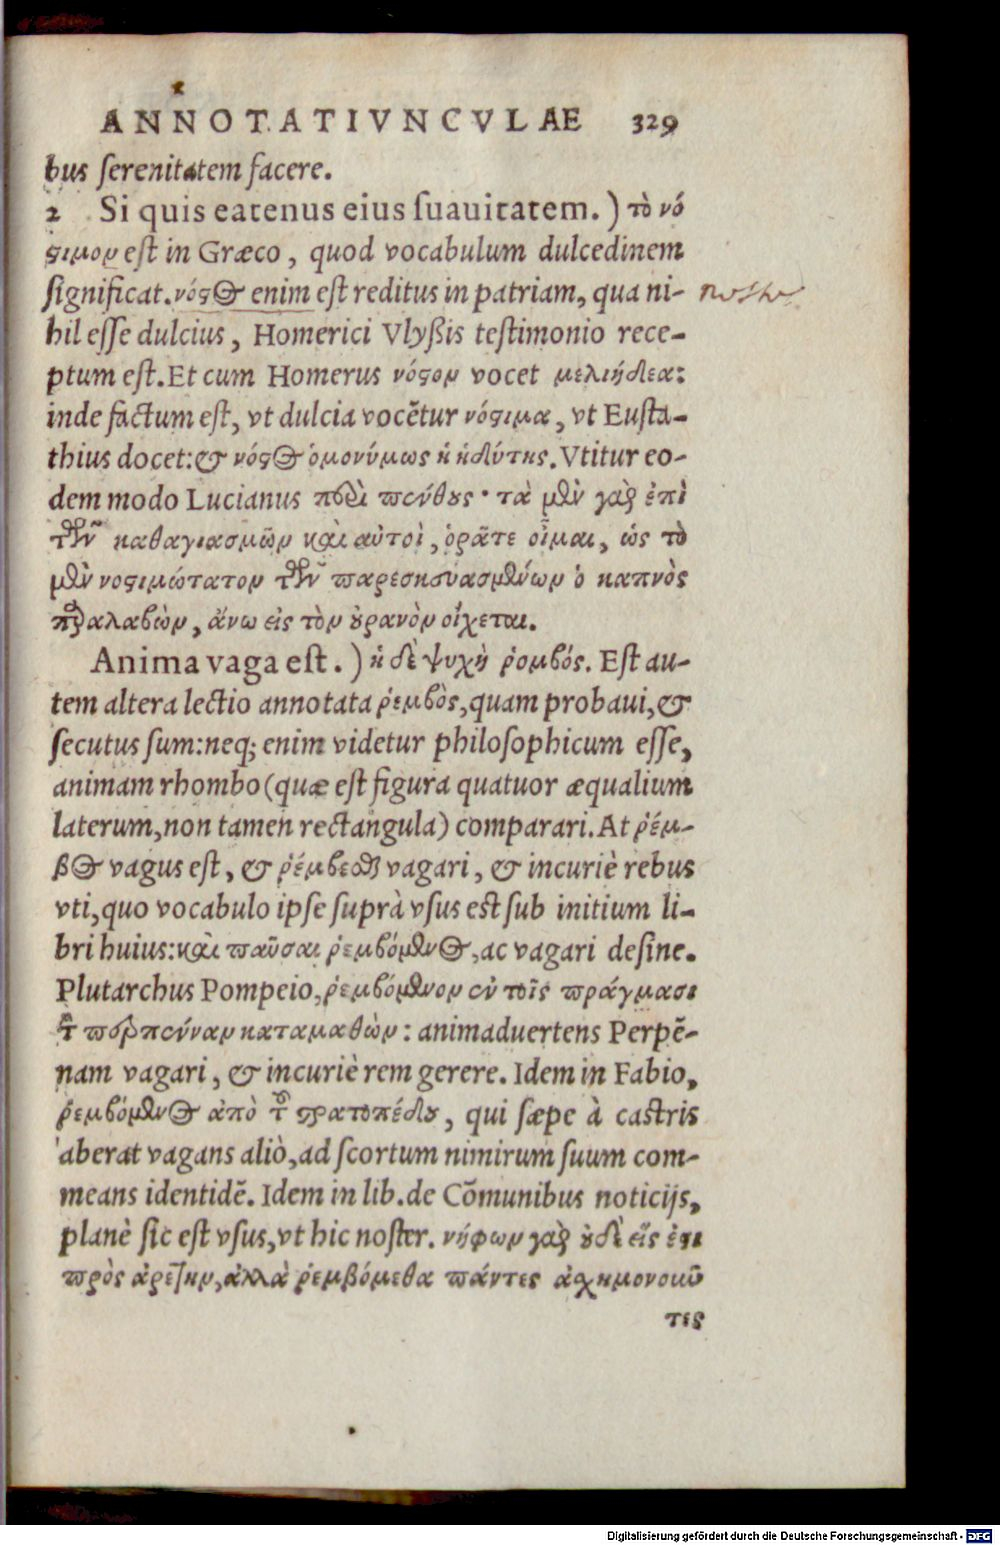 ANNOTATIVNCVLAE 329
bus serenitatem facere.
2 Si quis eatenus eius suauitatem.) τὸ νό
ϛιμον est in Græco, quod vocabulum dulcedinem
significat. νόϛος enim est reditus in patriam, qua ni-
hil esse dulcius, Homerici Vlyßis testimonio rece-
ptum est. Et cum Homerus νόϛον vocet μελιήδεα:
inde factum est, vt dulcia vocẽtur νόϛιμα, vt Eusta-
thius docet: & νόϛος ὁμονύμως ἡ ἡδύτης. Vtitur eo-
dem modo Lucianus περὶ πένθους · τὰ μὲν γὰρ ἐπὶ
τῶν καθαγιασμῶν καὶ αὐτοὶ, ὁρᾶτε οἶμαι, ὡς τὸ
μὲν νοϛιμώτατον τῶν παρεσκευασμένων ὁ καπνὸς
παραλαβὼν, ἄνω εἰς τὸν οὐρανὸν οἴχεται.
Anima vaga est.) ἡ δὲ ψυχὴ ῥομβός. Est au-
tem altera lectio annotata ῥεμβὸς, quam probaui, &
secutus sum: neq; enim videtur philosophicum esse,
animam rhombo (quæ est figura quatuor æqualium
laterum, non tamen rectangula) comparari. At ῥέμ-
βος vagus est, & ῥέμβεσθαι vagari, & incuriè rebus
vti, quo vocabulo ipse suprà vsus est sub initium li-
bri huius: καὶ παῦσαι ῥεμβόμενος, ac vagari desine.
Plutarchus Pompeio, ῥεμβόμενον ἐν τοῖς πράγμασι
τὸν περπένναν καταμαθὼν: animaduertens Perpẽ-
nam vagari, & incuriè rem gerere. Idem in Fabio,
ῥεμβόμενος ἀπὸ τοῦ ϛρατοπέδου, qui sæpe à castris
aberat vagans aliò, ad scortum nimirum suum com-
means identidẽ. Idem in lib. de Cõmunibus noticijs,
planè sic est vsus, vt hic noster. νήφων γὰρ οὐδὲ εἷς ἐϛι
πρὸς ἀρετὴν, ἀλλὰ ῥεμβόμεθα πάντες ἀσχημονοῦν
τες
Digitalisierung gefördert durch die Deutsche Forschungsgemeinschaft - DFG